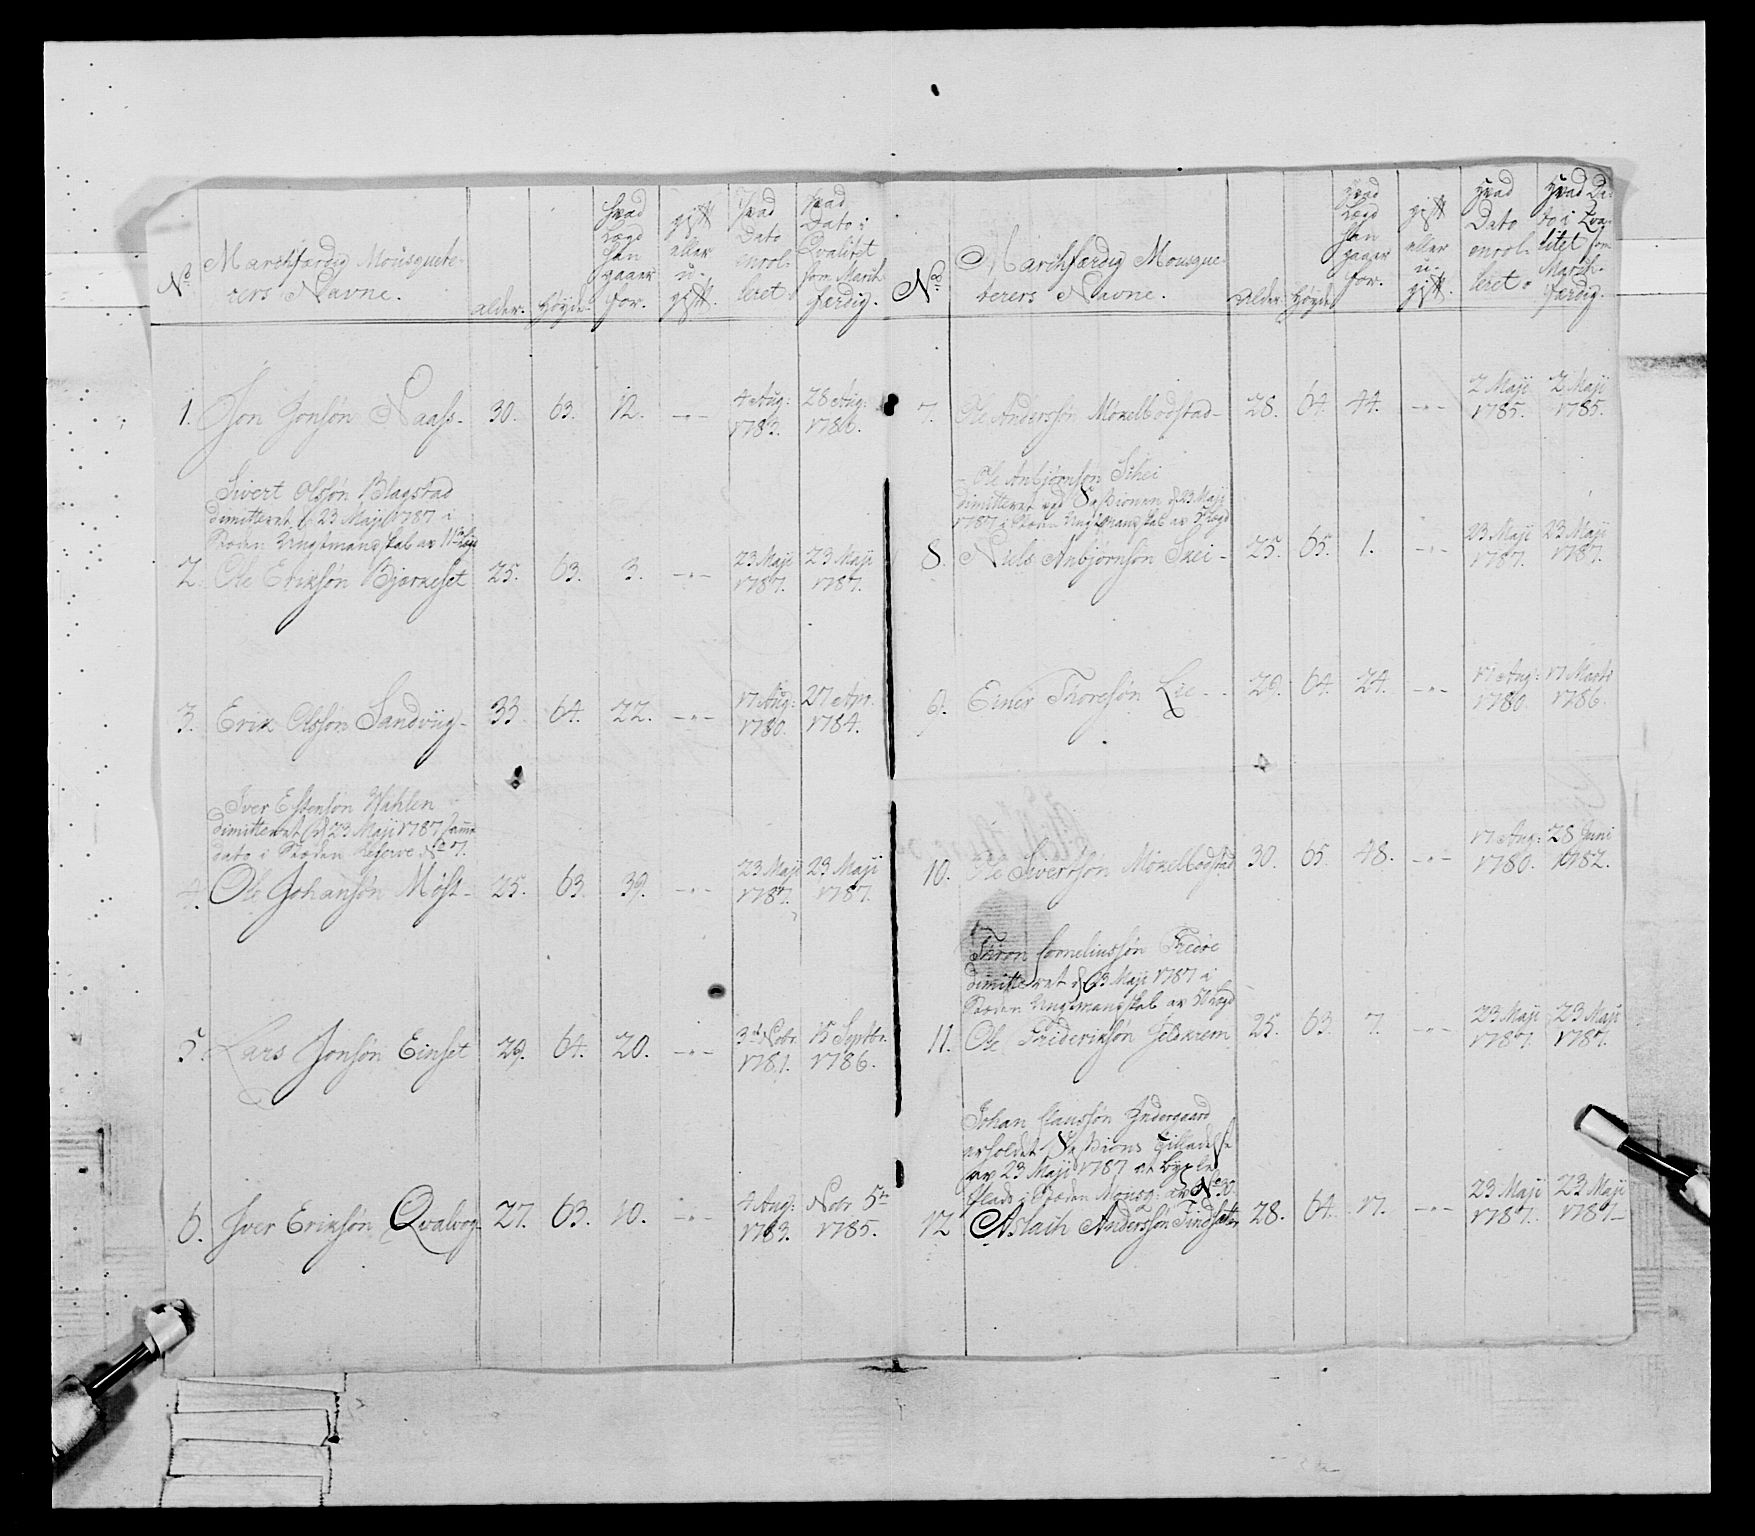 No
Marchfærdig Mousquete-
rers Navne.
alder.
Høyde.
Hvad
Lægd
Han
gaaer
for.
gift
eller
u-
gift.
Hvad
Dato
enrol-
leret
Hvad
Dato i
Qvalitet
som March-
færdig.
1. Jon Jonsøn Naass - 30. 63. 12. -"- 4 Aug: 1783. 28 Aug: 1786.
Sivert Olssøn Blagstad
dimitteret d 23 Maji 1787 i
Stæden Ungtmandskab av 11te Lægd
2. Ole Eriksøn Bjerkeset 25. 63. 3. -"- 23 Maji 1787. 23 Maji 1787.
3. Erik Olssøn Sandviig - 33. 64. 22. -"- 17 Aug: 1780. 27 Apr. 1784.
Iver Estensøn Wahlen
dimitteret d 23 Maji 1787 samme
dato i Stæden Reserve No 7.
4. Ole Johansøn Möst - 25. 63. 39. -"- 23 Maji 1787. 23 Maji 1787.
5. Lars Jonsøn Einset 29. 64. 20. -"- 3d Nobr. 1781. 15 Septbr. 1786.
6. Iver Eriksøn Qvalvog 27. 63. 10. -"- 4 Aug: 1783. Nobr 5te 1785.
No
Marchfærdig Mousque-
terers Navne.
Alder.
Høyde
Hvad
Lægd
Han
gaaer
for.
gift
eller
u-
gift.
Hvad
Dato
enrol-
leret
Hvad Da-
to i Qva-
litet som
March-
færdig.
7. Ole Anderssøn Mökelbodstad - 28. 64. 44. -"- 2 Maji 1785. 2 Maji 1785.
Ole Anbjørnsøn Skei
dimitteret ved Sessionen d 23 Maji
1787 i Stæden Ungtmandskab av Lægd
8. Niels Anbjørnsøn Skei - 25. 65. 1. -"- 23 Maji 1787. 23 Maji 1787.
9. Einer Thoresøn Lie - 29. 64. 24. -"- 17 Aug: 1780. 17 Marts 1786.
10. Ole Sivertsøn Mökelbodstad 30. 65. 48. -"- 17 Aug: 1780. 28 Juni 1782.
Corneliussøn
dimitteret d 23 Maji 1787 i
Stæden Ungtmandskab av Lægd
11. Ole Frideriksøn 25. 63. 7. -"- 23 Maji 1787. 23 Maji 1787.
Johan Claussøn Indergaard
erholdet Sessions Tilladelse
av 23 Maji 1787 at bytte
Plads i Stæden Mousq: av No 30.
12 Aslach Anderssøn Findsæter 28. 64. 17. -"- 23 Maji 1787. 23 Maji 1787 -